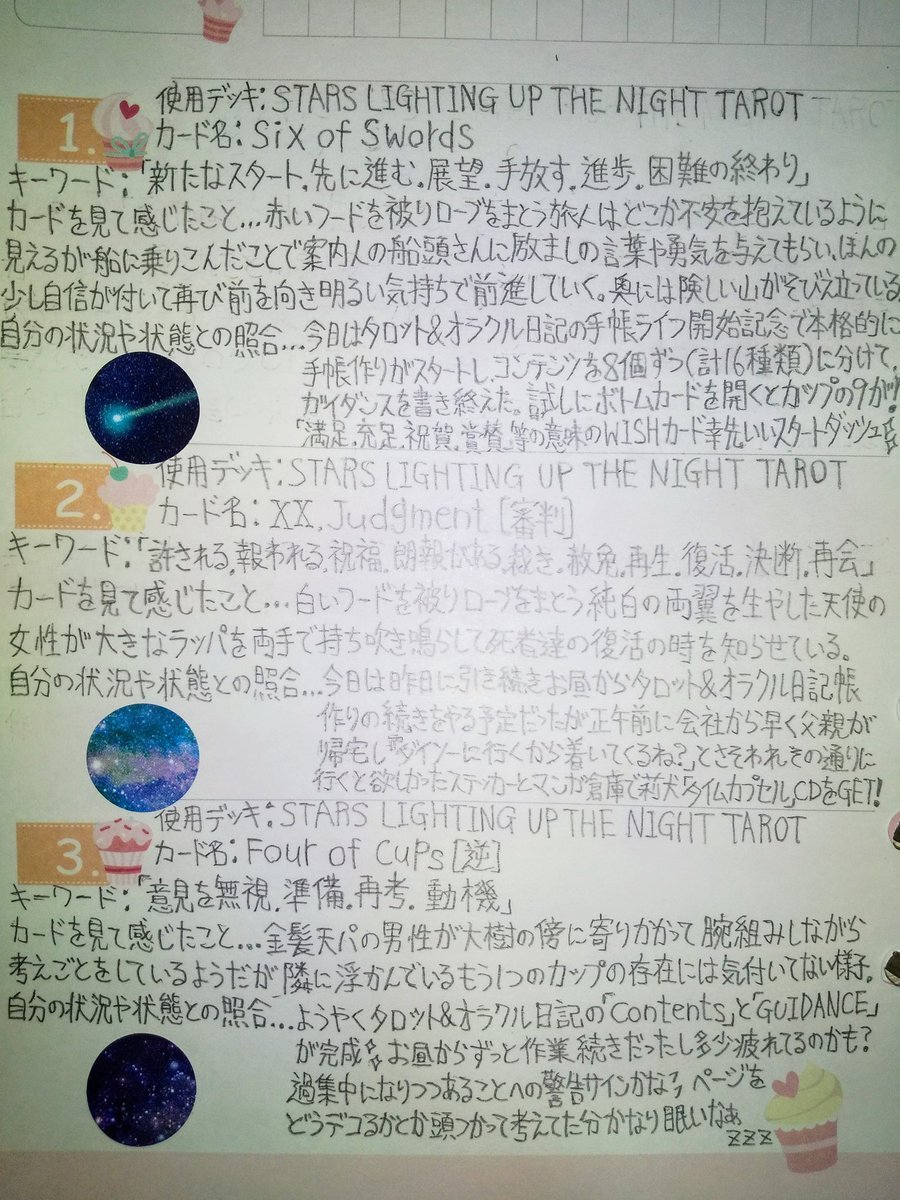 1.
使用デッキ:STARS LIGHTING UP THE NIGHT TAROT
カード名:Six of Swords
キーワード:「新たなスタート.先に進む.展望.手放す.進歩.困難の終わり」
カードを見て感じたこと…赤いフードを被りローブをまとう旅人はどこか不安を抱えているように
見えるが船に乗りこんだことで案内人の船頭さんに励ましの言葉や勇気を与えてもらい、ほんの
少し自信が付いて再び前を向き明るい気持ちで前進していく。奥には険しい山がそびえ立っている
自分の状況や状態との照合…今日はタロット&オラクル日記の手帳ライフ開始記念で本格的に
手帳作りがスタートし、コンテンツを8個ずつ(計16種類)に分けて、
ガイダンスを書き終えた。試しにボトムカードを開くとカップの9が!!
「満足.充足.祝賀.賞賛」等の意味のWISHカード幸先いいスタートダッシュ
2.
使用デッキ:STARS LIGHTING UP THE NIGHT TAROT
カード名:XX.Judgment[審判]
キーワード:「許される.報われる.祝福.朗報がある.裁き.赦免.再生.復活.決断.再会」
カードを見て感じたこと…白いフードを被りローブをまとう純白の両翼を生やした天使の
女性が大きなラッパを両手で持ち吹き鳴らして死者達の復活の時を知らせている。
自分の状況や状態との照合…今日は昨日に引き続きお昼からタロット&オラクル日記帳
作りの続きをやる予定だったが正午前に会社から早く父親が
帰宅し「ダイソーに行くから着いてくるね?」とさそわれその通りに
行くと欲しかったステッカーとマンガ倉庫で莉犬「タイムカプセル」CDをGET!
3.
使用デッキ:STARS LIGHTING UP THE NIGHT TAROT
カード名:Four of Cups[逆]
キーワード:「意見を無視.準備.再考.動機」
カードを見て感じたこと…金髪天パの男性が大樹の傍に寄りかかって腕組みしながら
考えごとをしているようだが隣に浮かんでいるもう1つのカップの存在には気付いてない様子.
自分の状況や状態との照合…ようやくタロット&オラクル日記の「Contents」と「GUIDANCE」
が完成 お昼からずっと作業続きだったし多少疲れてるのかも?
過集中になりつつあることへの警告サインかな? ページを
どうデコるかとか頭つかって考えてた分かなり眠いなぁ
zzz